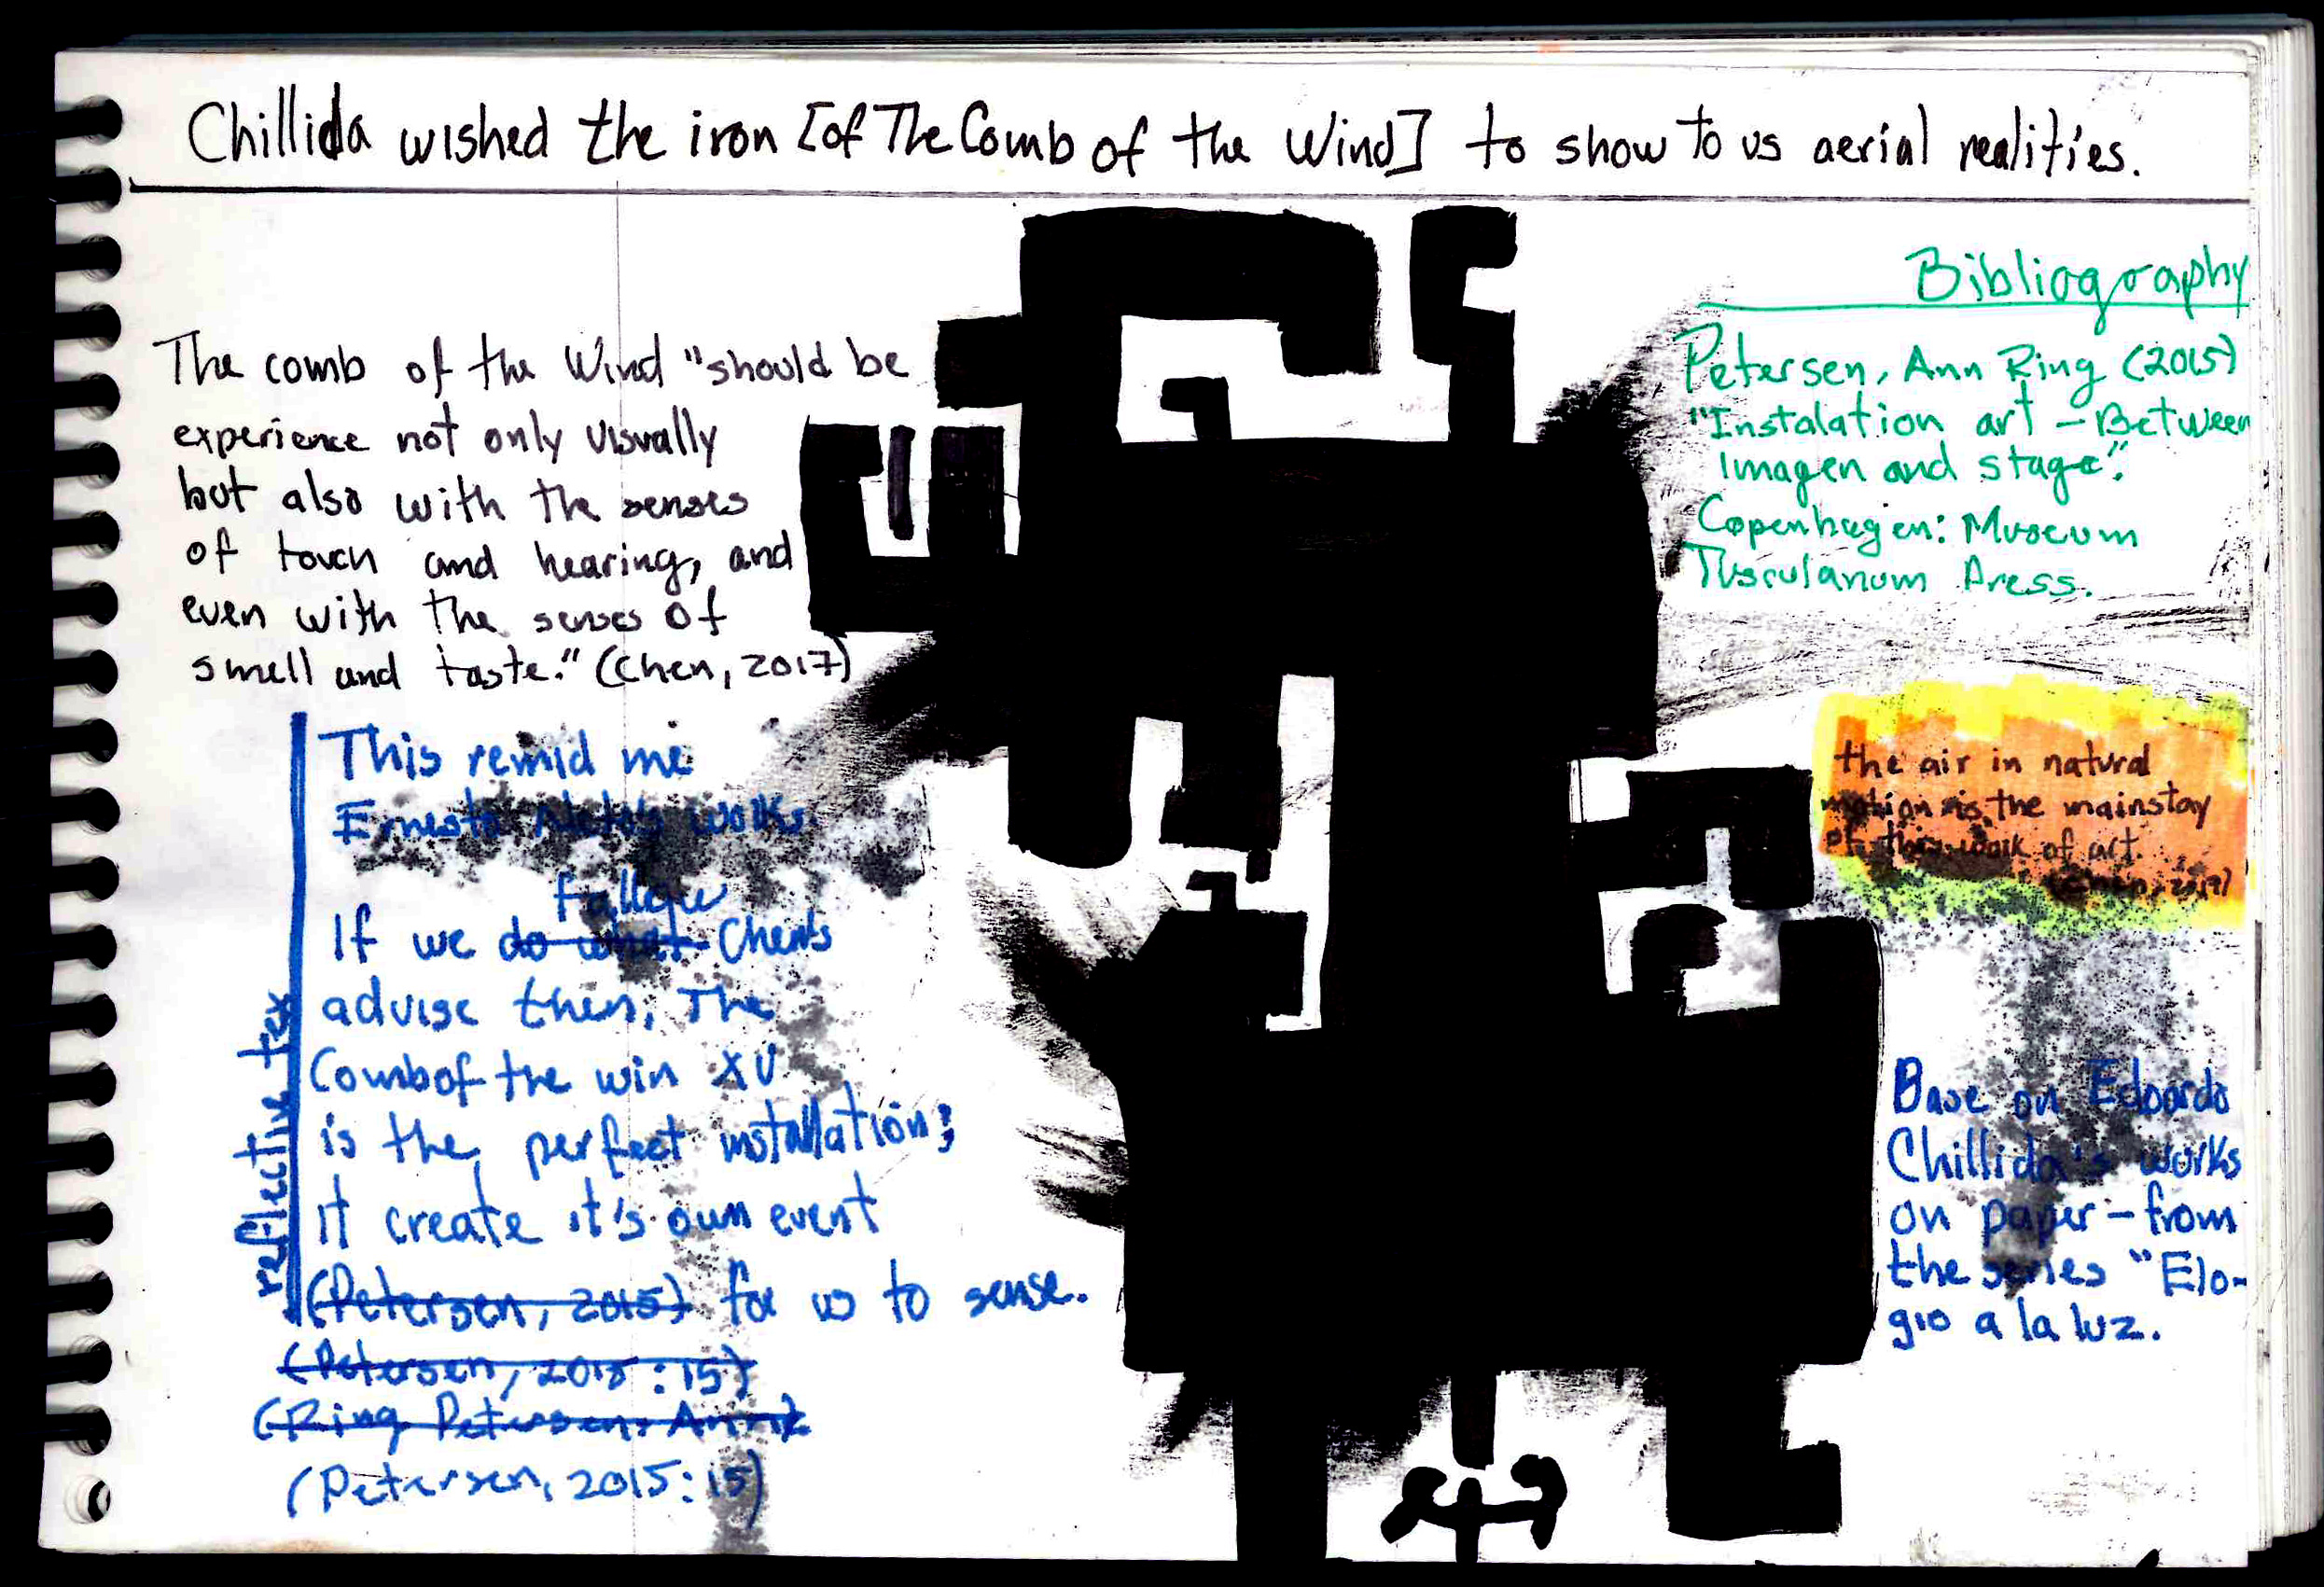 Chillida wished the iron [of The Comb of the Wind] to show to us aerial realities.
The comb of the Wind "should be
experience not only visually
but also with the senses
of touch and hearing, and
even with the senses of
smell and taste." (Chen, 2017)
reflective tex
This remid me
Ernesto Neto's works.
Follow
If we do what Chen's
advise then, The
Comb of the win XV
is the perfect installation;
it create it's own event
(Petersen, 2015) for us to sense.
(Petersen, 2015:15)
(Ring Petersen, Ann
(Petersen, 2015:15)
Bibliography
Petersen, Ann Ring (2015)
"Instalation art - Between
Imagen and stage".
Copenhagen: Museum
Tusculanum Press.
the air in natural
motion is the mainstay
of this work of art.
(Chen, 2017)
Base on Edoardo
Chillida's works
on paper - from
the series "Elo-
gio a la luz.